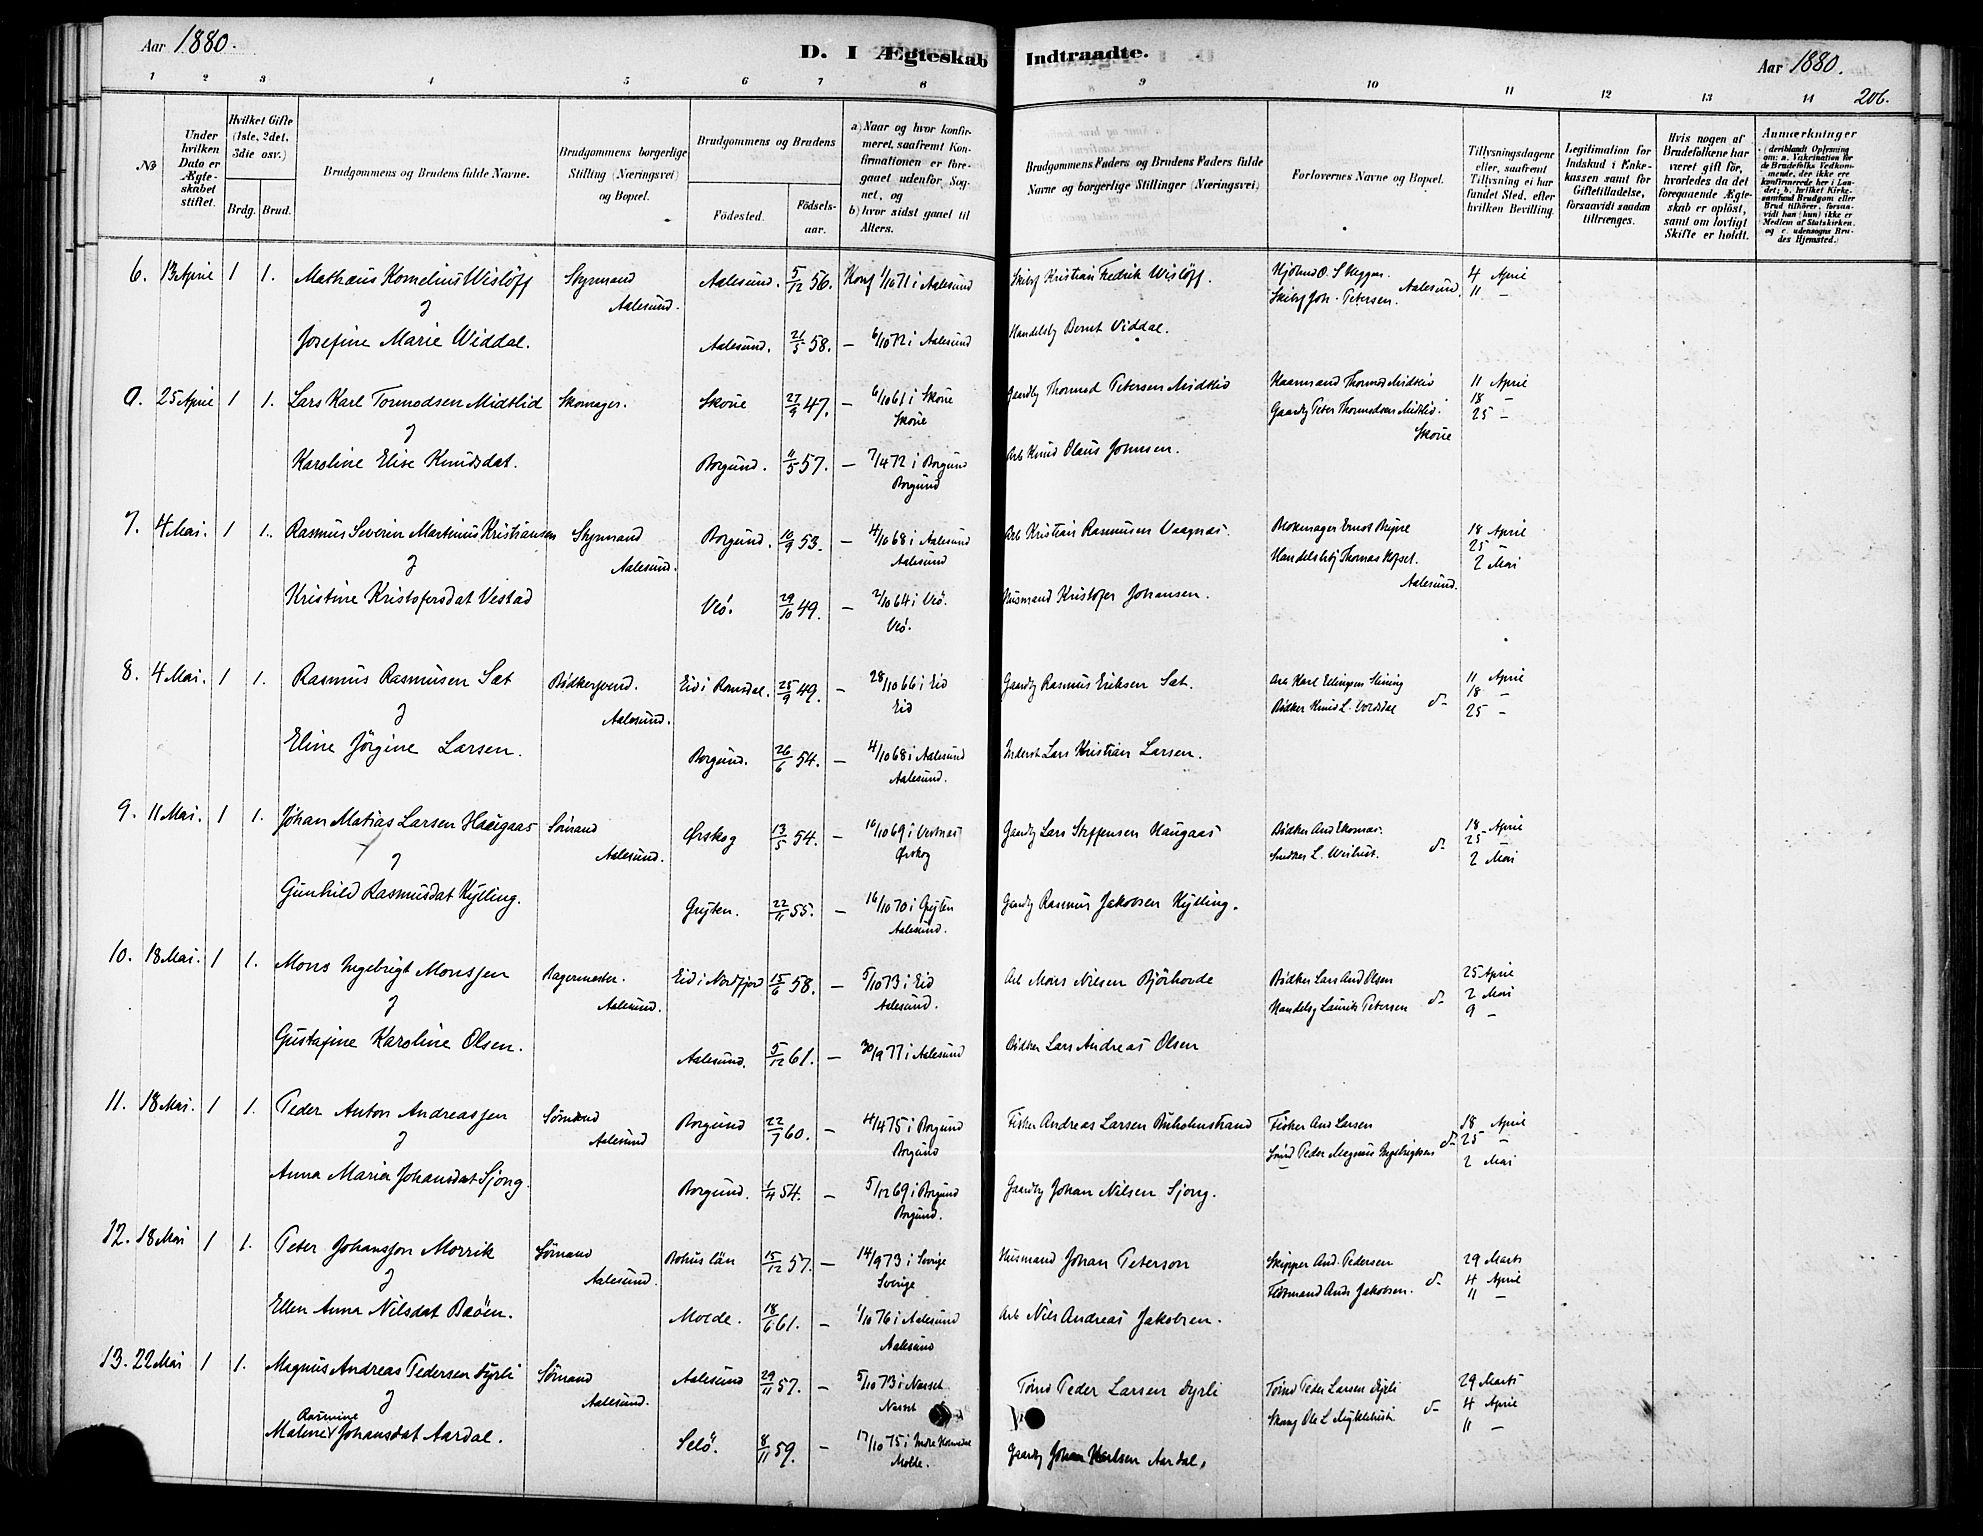 Aar 1880.
D. I Ægteskab Indtraadte.
Aar 1880.
206.
1 2 3 4 5 6 7 8 9 10 11 12 13 14
No
Under hvilken Dato er Ægteskabet stiftet.
Hvilket Gifte (1ste, 2det, 3die osv.)
Brdg. Brud.
Brudgommens og Brudens fulde Navne.
Brudgommens borgerlige Stilling (Næringsvei) og Bopæl.
Brudgommens og Brudens
Fødested.
Fødselsaar.
a) Naar og hvor konfirmeret, saafremt Konfirmationen er foregaaet udenfor Sognet, og
b) hvor sidst gaaet til Alters.
Brudgommens Faders og Brudens Faders fulde Navne og borgerlige Stillinger (Næringsvei)
Forlovernes Navne og Bopæl.
Tillysningsdagene eller, saafremt Tillysning ei har fundet Sted, efter hvilken Bevilling.
Legitimation for Indskud i Enkekassen samt for Giftetilladelse, forsaavidt saadan tiltrænges.
Hvis nogen af Brudefolkene har været gift før, hvorledes da det foregaaende Ægteskab er opløst, samt om lovligt Skifte er holdt.
Anmærkninger (deriblandt Oplysning om: a. Vakcination for de Brudefolks Vedkommende, der ikke ere konfirmerede her i Landet; b. hvilket Kirkesamfund Brudgom eller Brud tilhører, forsaavidt han (hun) ikke er Medlem af Statskirken, og c. udensogns Brudes Hjemsted.)
6. 13 April 1 1. Mathæus Kornelius Wisløff Styrmand Aalesund. Aalesund. 5/12 56. Konf 1/10 71 i Aalesund Skibsf Kristian Fredrik Wisløff. 4 April
Skibsf Joh. Petersen. Aalesund. 11 –
Josefine Marie Widdal. Aalesund. 21/5 58. – 6/10 72 i Aalesund Handelsb Bernt Viddal.
25 April 1 1. Lars Karl Tormodsen Midtlid Skomager. Skoue 27/9 47. – 6/10 61 i Skoue Skoue Gaardbr Thormod Petersen Midtlid Thormod Midtlid 11 April
Gaardbr Peter Thormodsen Midtlid. Skoue 18 – 25 –
Karoline Elise Knudsdat. Borgund. 11/5 57. – 7/4 72 i Borgund Borgund Arb Knud Olaus Johnsen.
7. 4 Mai. 1 1. Rasmus Severin Martinus Kristiansen Styrmand Aalesund. Borgund. 10/9 53. – 4/10 68 i Aalesund Aalesund Arb Kristian Rasmusen Vaagnæs. 18 April
Thomas Hofset. Aalesund. 25 – 2 Mai
Kristine Kristofersdat Vestad Veö. 29/10 49. – 2/10 64 i Veö. Veö. Husmand Kristofer Johansen.
8. 4 Mai. 1 1. Rasmus Rasmusen Sæt Bødkersvend. Aalesund. Eid i Romsdal. 25/9 49. – 28/10 66 i Eid Eid Gaardbr Rasmus Eriksen Sæt. 11 April
Bødker Knud L. 18 – 25 –
Eline Jørgine Larsen. Borgund. 26/6 54. – 4/10 68 i Aalesund Aalesund. Inderst Lars Kristian Larsen.
9. 11 Mai. 1 1. Johan Matias Larsen Haugaas Sømand Aalesund. Ørskog 13/5 54. – 10/10 69 i Vestnæs Ørskog Gaardbr Lars Steffensen Haugaas Bødker And Ekornæs. 18 April
25 – 2 Mai
Gunhild Rasmusdat Kylling. Gryten. 22/11 55. – 16/10 70 i Gryten Aalesund. Gaardbr Rasmus Jakobsen Kylling.
10. 18 Mai. 1 1. Mons Ingebrigt Monssen Bagermester. Aalesund. Eid i Nordfjord 15/6 58. – 5/10 73 i Eid Aalesund. Arb Mons Nilsen Bjørhovde Bødker Lars And Olsen 25 April
Handelsb Laurits Petersen 2 Mai 9 –
Gustafine Karoline Olsen. Aalesund. 5/12 61. – 30/9 77 i Aalesund Bødker Lars Andreas Olsen
11. 18 Mai. 1 1. Peder Anton Andreassen Sømand Aalesund Borgund 22/7 60. – 4/4 75 i Borgund Borgund Fisker Andreas Larsen Buholmstrand Fisker Ans Larsen 18 April
Peder Magnus Ingebrigtsen 25 – 2 Mai
Anna Maria Johansdat Sjong. Borgund. 1/4 54. – 5/12 69 i Borgund Borgund. Gaardbr Johan Nilsen Sjong.
12. 18 Mai 1 1. Peter Johansson Morrik Sømand Aalesund. Bohus län 15/12 57. – 14/9 73 i Sverige Sverige Husmand Johan Peterson Skipper And. Pedersen 29 Marts
Ands Jakobsen. 4 April 11 –
Ellen Anna Nilsdat Baöen. Molde. 18/6 61. – 1/10 76 i Aalesund Aalesund Arb Nils Andreas Jakobsen.
13. 22 Mai 1 1. Magnus Andreas Pedersen Dyrli Sømand Aalesund. Aalesund 29/11 57. – 5/10 73 i Nærset Nærset Peder Larsen Dyrli Peder Larsen Dyrli 29 Marts
Ole L Myklebust 4 April 11 –
Malene Rasmine Johansdat Aardal. Selö. 8/11 59. – 17/10 75 i Molde. Gaardbr Johan Karlsen Aardal.